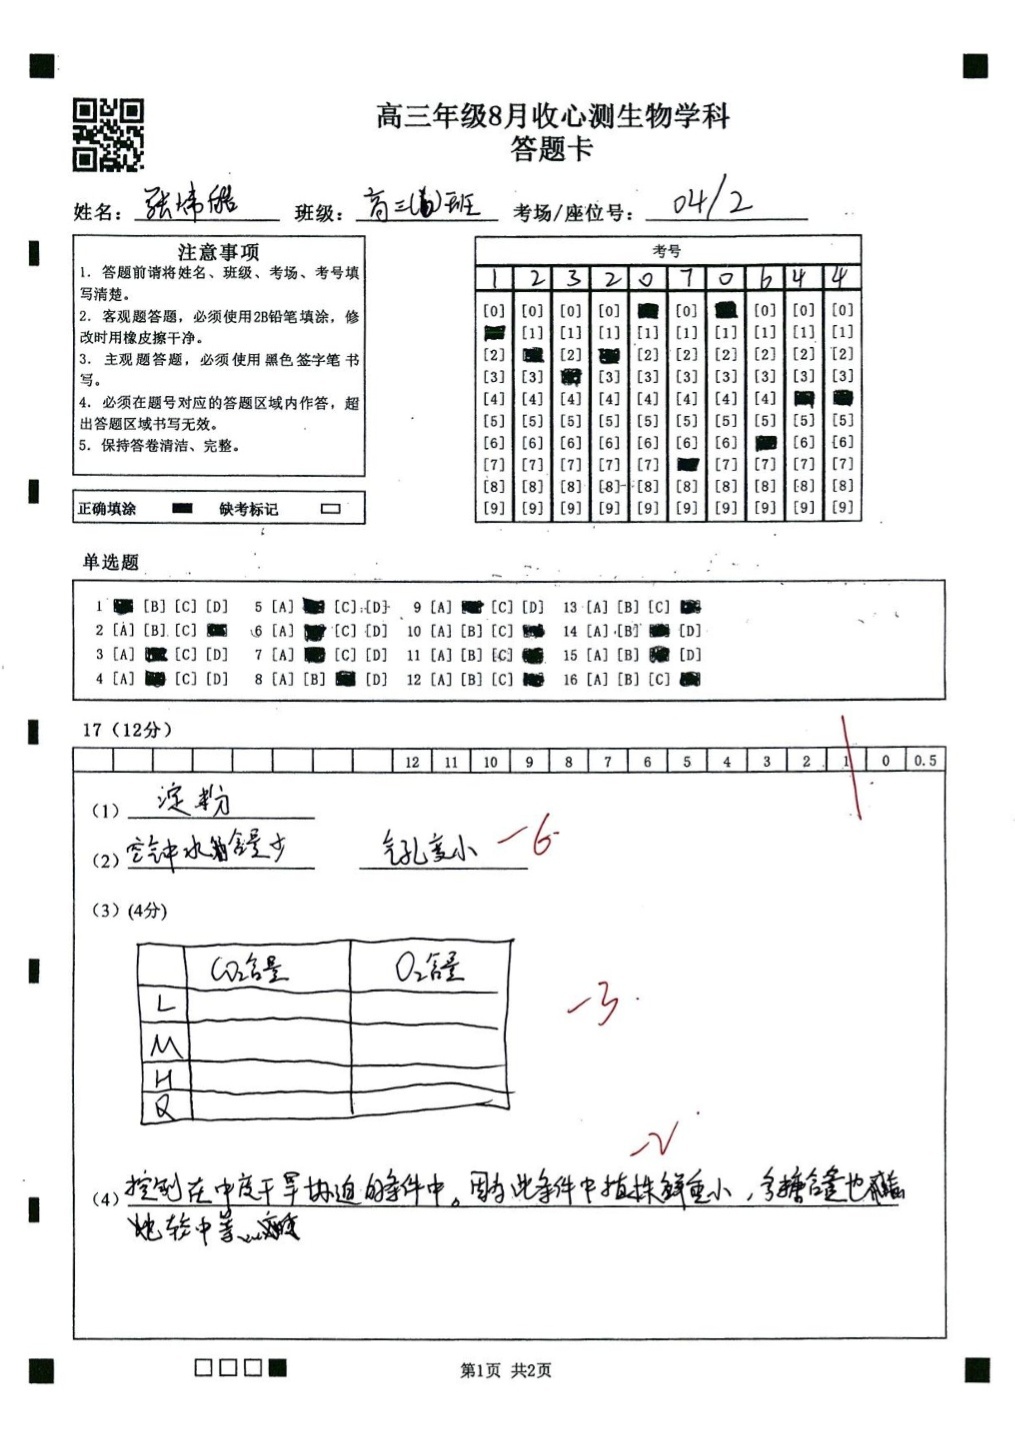 高三年级8月收心测生物学科
答题卡
姓名: 张炜皓 班级: 高三()班 考场/座位号: 04/2
注意事项
1. 答题前请将姓名、班级、考场、考号填
写清楚。
2. 客观题答题，必须使用2B铅笔填涂，修
改时用橡皮擦干净。
3. 主观题答题，必须使用黑色签字笔书
写。
4. 必须在题号对应的答题区域内作答，超
出答题区域书写无效。
5. 保持答卷清洁、完整。
正确填涂 缺考标记
考号
1 2 3 2 0 7 0 6 4 4
[0] [0] [0] [0] [0] [0] [0] [0]
[1] [1] [1] [1] [1] [1] [1] [1] [1]
[2] [2] [2] [2] [2] [2] [2] [2]
[3] [3] [3] [3] [3] [3] [3] [3] [3]
[4] [4] [4] [4] [4] [4] [4] [4]
[5] [5] [5] [5] [5] [5] [5] [5] [5] [5]
[6] [6] [6] [6] [6] [6] [6] [6] [6]
[7] [7] [7] [7] [7] [7] [7] [7] [7]
[8] [8] [8] [8] [8] [8] [8] [8] [8] [8]
[9] [9] [9] [9] [9] [9] [9] [9] [9] [9]
单选题
1 [B] [C] [D] 5 [A] [C] [D] 9 [A] [C] [D] 13 [A] [B] [C]
2 [A] [B] [C] 6 [A] [C] [D] 10 [A] [B] [C] 14 [A] [B] [D]
3 [A] [C] [D] 7 [A] [C] [D] 11 [A] [B] [C] 15 [A] [B] [D]
4 [A] [C] [D] 8 [A] [B] [D] 12 [A] [B] [C] 16 [A] [B] [C]
17（12分）
12 11 10 9 8 7 6 5 4 3 2 1 0 0.5
（1）淀粉
（2）空气中水含量少 气孔变小 -6
（3）(4分)
CO₂含量 O₂含量
L
M
H
Q
-3
-2
（4）控制在中度干旱胁迫的条件中。因为此条件中植株鲜重小，多糖含量也
比较中等
第1页 共2页